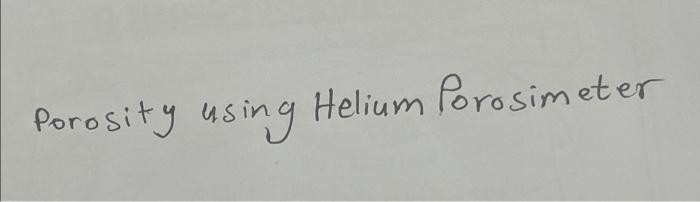 Porosity using Helium Porosimeter